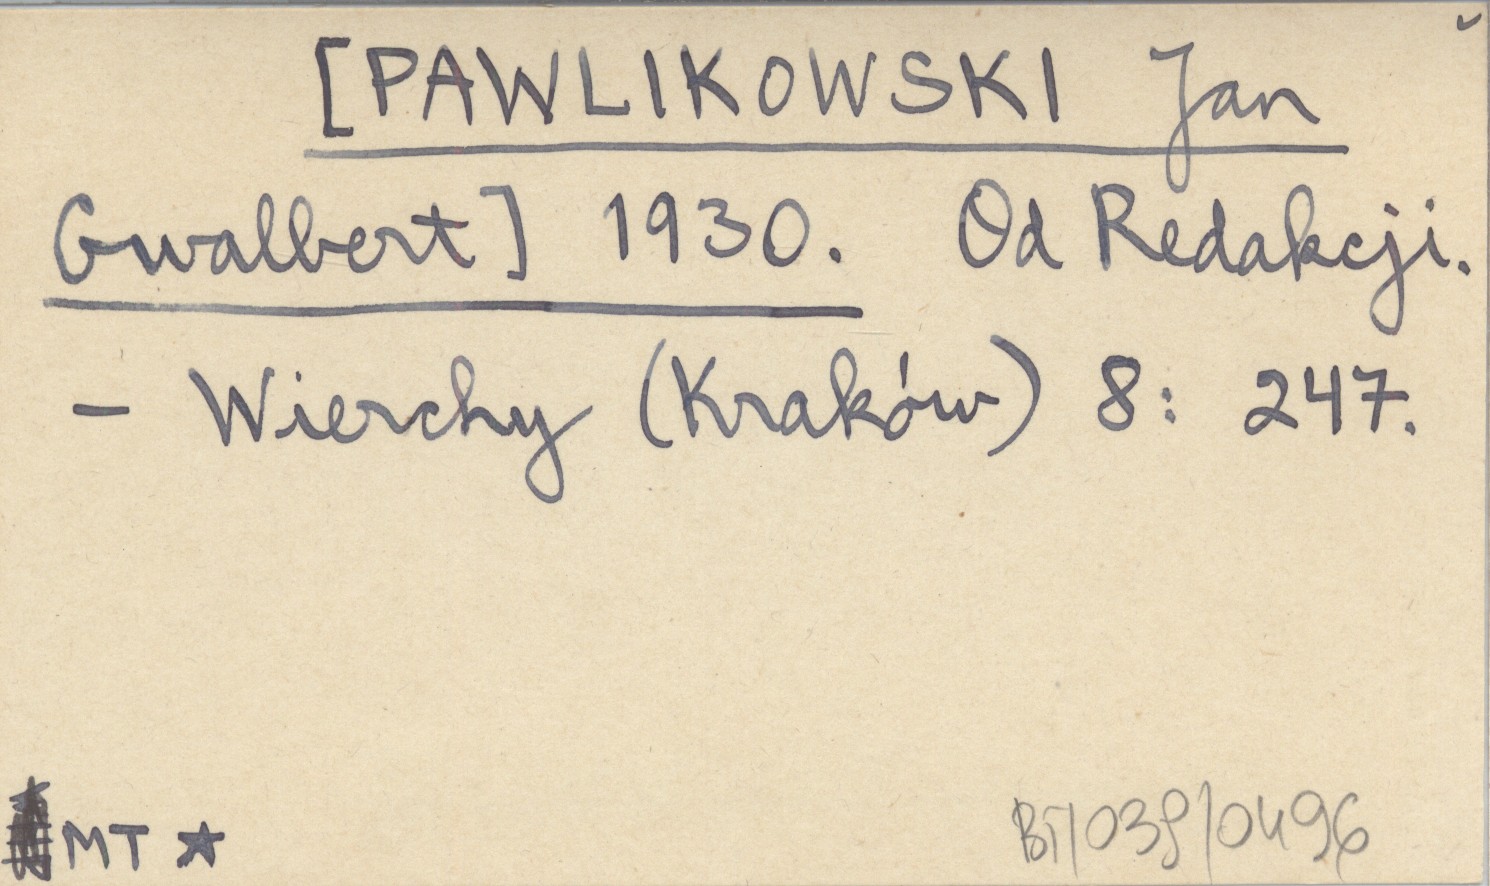 [PAWLIKOWSKI Jan
Gwalbert] 1930. Od Redakcji.
– Wierchy (Kraków) 8: 247.
MT ★
BT/038/0496